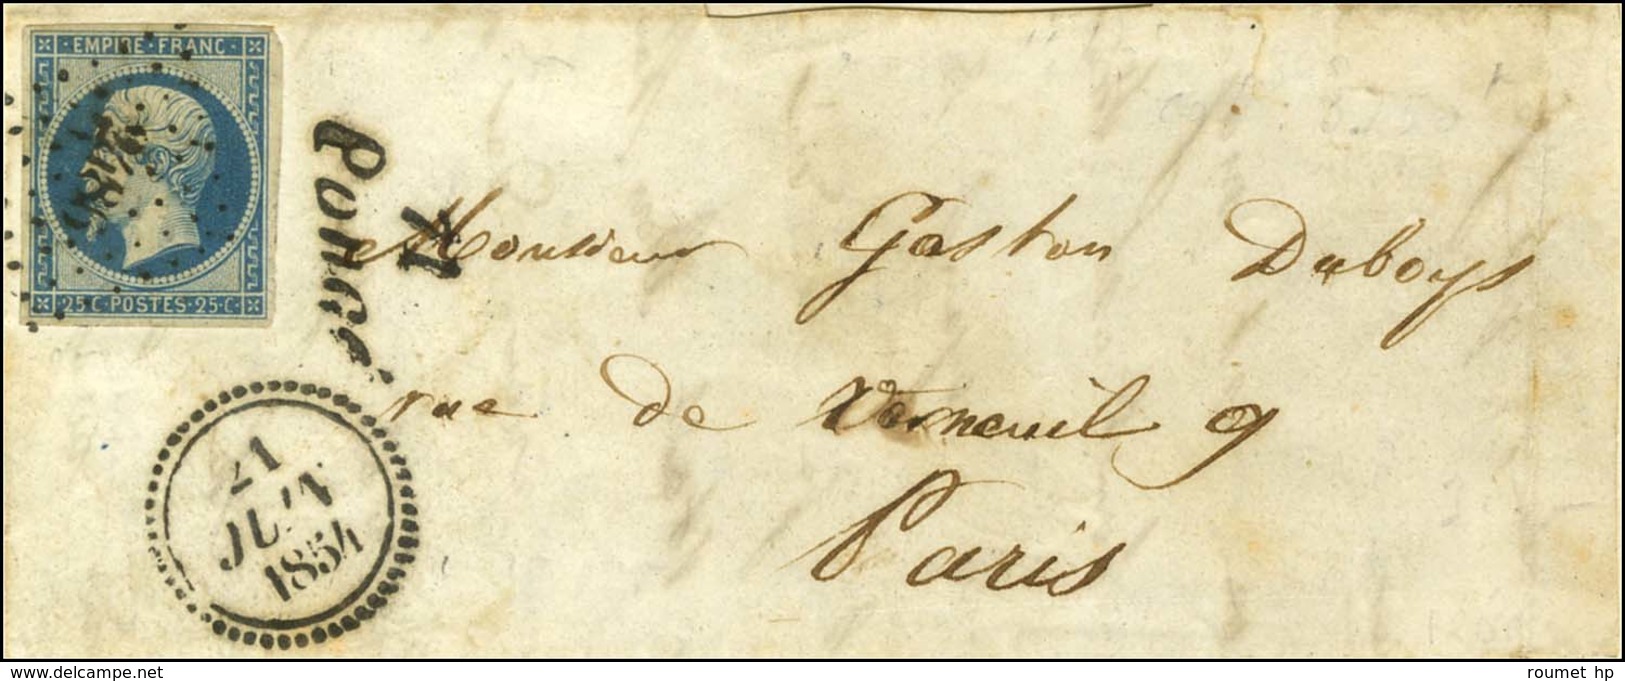 EMPIRE · FRANC ·
25 · C · POSTES · 25 · C ·
71
Poncé
Monsieur Gaston Duboys
rue de Verneuil 9
Paris
21
JUIN
1854
www.delcampe.net
roumet hp